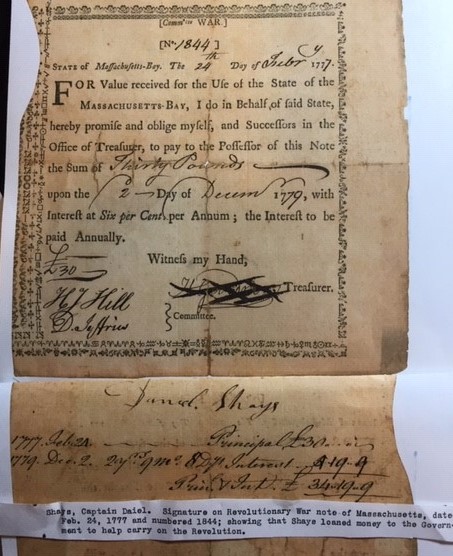 [Comm'tee WAR.]
[No. 1844]
STATE of Massachusetts-Bay. The 24th Day of Febry 1777.
FOR Value received for the Use of the State of the
MASSACHUSETTS-BAY, I do in Behalf of said State,
hereby promise and oblige myself, and Successors in the
Office of Treasurer, to pay to the Possessor of this Note
the Sum of Thirty Pounds
upon the 2 Day of Decemr 1779, with
Interest at Six per Cent. per Annum; the Interest to be
paid Annually.
Witness my Hand,
£30
Treasurer.
H J Hill
D. Jeffries
} Committee.
Daniel Shays
1777. Feb. 24 Principal £30
1779. Dec. 2. 2 ys 9 mo. 8 Ds Interest 4-19-9
Prin & Int. £ 34-19-9
Shays, Captain Daiel. Signature on Revolutionary War note of Massachusetts, date
Feb. 24, 1777 and numbered 1844; showing that Shays loaned money to the Govern-
ment to help carry on the Revolution.